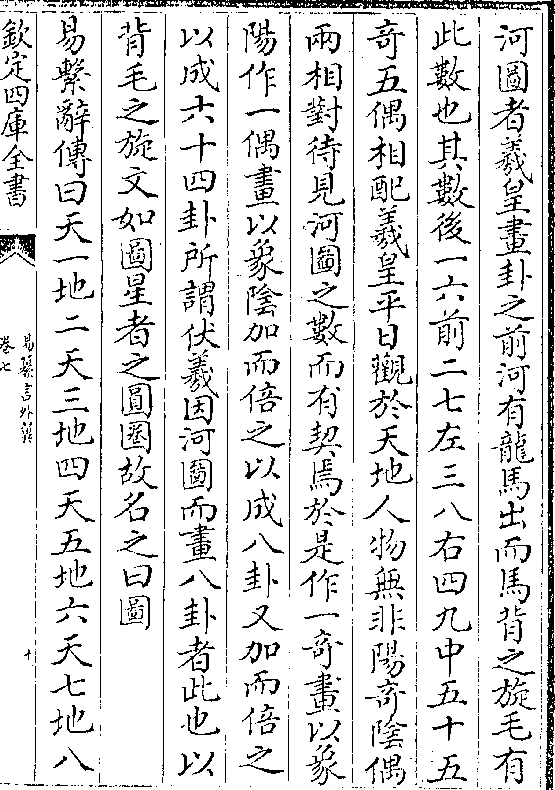 河圖者羲皇畫卦之前河有龍馬出而馬背之旋毛有
此數也其數後一六前二七左三八右四九中五十五
竒五偶相配羲皇平日觀於天地人物無非陽竒隂偶
兩相對待見河圖之數而有契焉於是作一竒畫以象
陽作一偶畫以象隂加而倍之以成八卦又加而倍之
以成六十四卦所謂伏羲因河圖而畫八卦者此也以
背毛之旋文如圖星者之圓圈故名之曰圖
易繫辭傳曰天一地二天三地四天五地六天七地八
欽定四庫全書
易纂言外翼
卷七
十